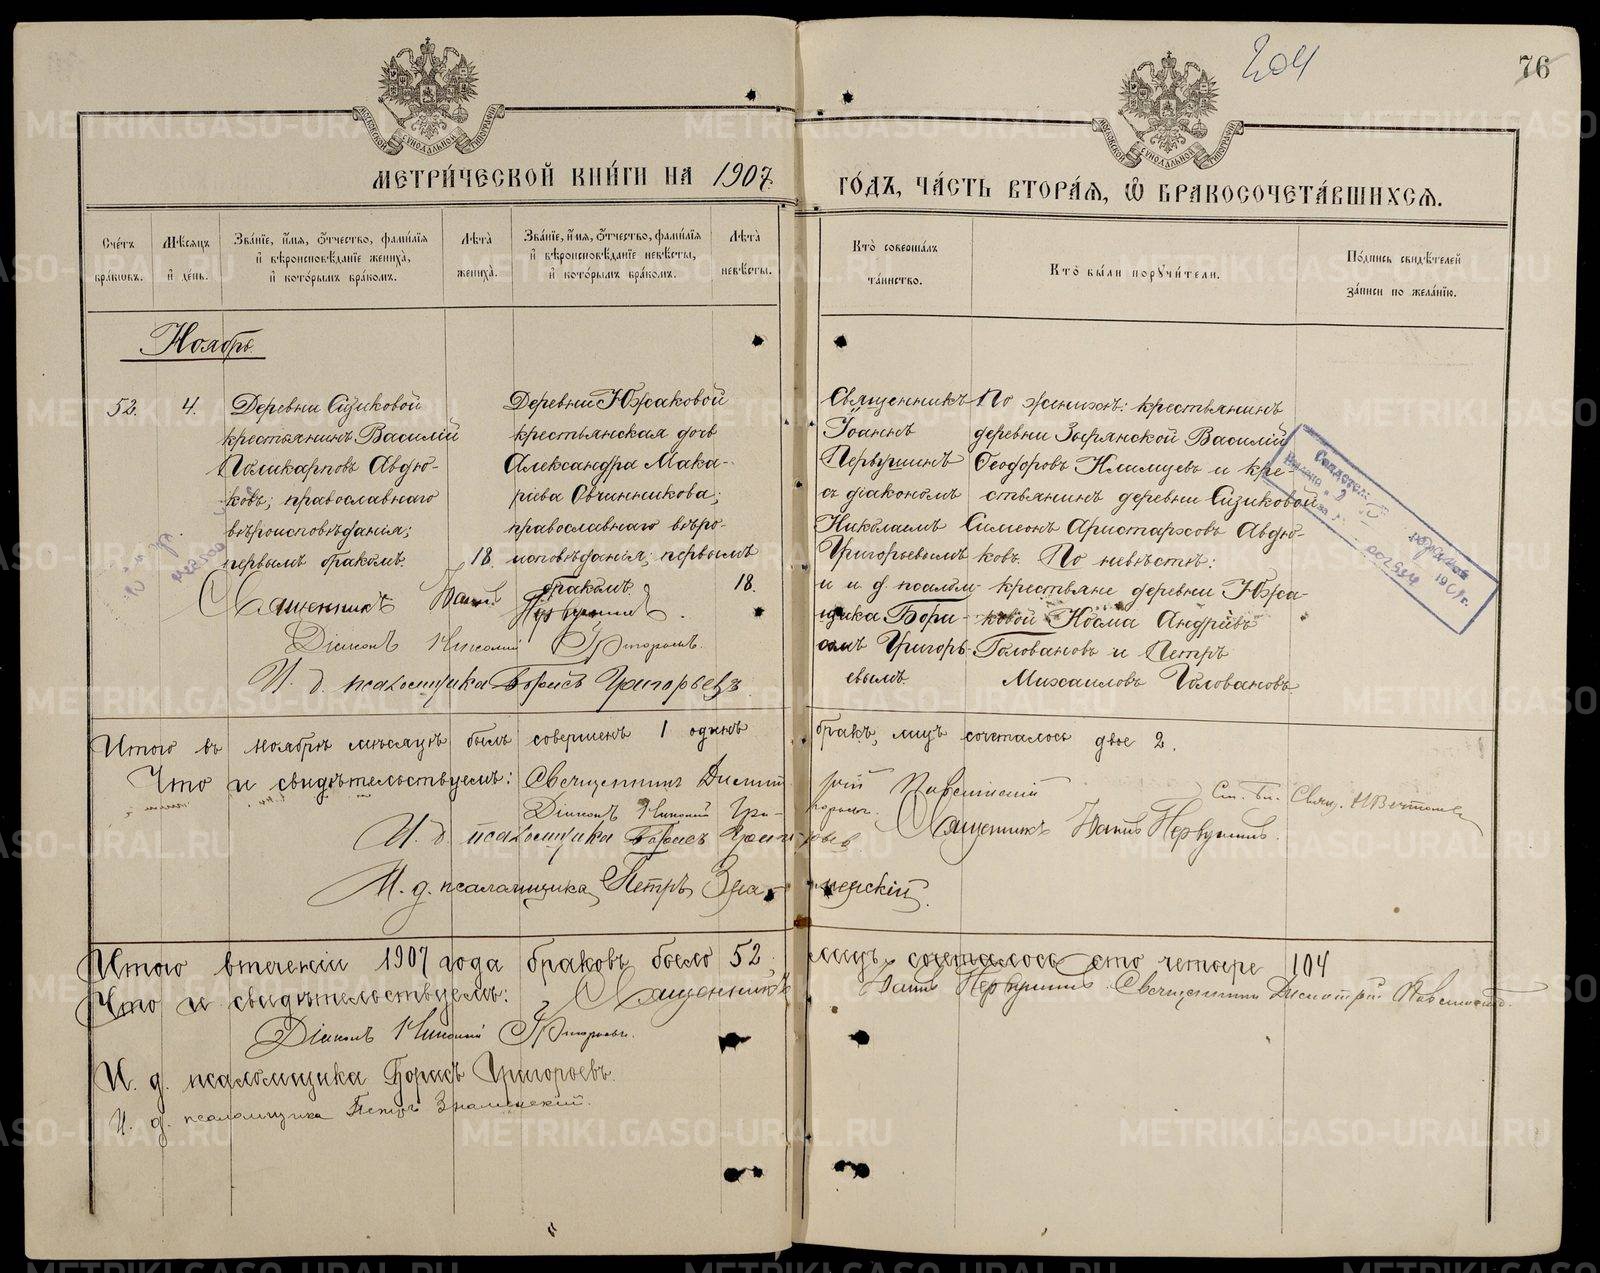 204
76
МЕТРИ́ЧЕСКОЙ КНИ́ГИ НА 1907 ГО́ДЪ, ЧА́СТЬ ВТОРА́Я, Ѡ БРАКОСОЧЕТА́ВШИХСЯ.
МОСКОВСКОЙ СѴНОДАЛЬНОЙ ТИПОГРАФІИ
МОСКОВСКОЙ СѴНОДАЛЬНОЙ ТИПОГРАФІИ
Сче́тъ бра́ковъ.
Мѣ́сяцъ и҆ де́нь.
Зва́нїе, и҆́мя, ѻ҆́тчество, фами́лїя и҆ вѣроисповѣ́данїе жениха̀, и҆ кото́рымъ бра́комъ.
Лѣ́та жениха̀.
Зва́нїе, и҆́мя, ѻ҆́тчество, фами́лїя и҆ вѣроисповѣ́данїе невѣ́сты, и҆ кото́рымъ бра́комъ.
Лѣ́та невѣ́сты.
Кто̀ соверша́лъ та́инство.
Кто̀ бы́ли порꙋчи́тели.
По́дпись свидѣ́телей за́писи по жела́нїю.
Ноябрь
52. 4.
Деревни Сизиковой
крестьянинъ Василій
Поликарповъ Авдю-
ковъ; православнаго
вѣроисповѣданія;
первымъ бракомъ. 18.
Деревни Южаковой
крестьянская дочь
Александра Мака-
ріева Овчинникова;
православнаго вѣро-
исповѣданія; первымъ
бракомъ. 18.
Священникъ
Іоаннъ
Первушинъ
съ діакономъ
Николаемъ
Григорьевымъ
и и д псалом-
щика Бори-
сомъ Григорь-
евымъ.
По женихѣ: крестьянинъ
деревни Зырянской Василій
Ѳеодоровъ Клим и кре-
стьянинъ деревни Сизиковой
Симеонъ Аристарховъ Авдю-
ковъ. По невѣстѣ:
крестьяне деревни Южа-
ковой Косма Андреевъ
Головановъ и Петръ
Михаиловъ Головановъ.
Священникъ Іоаннъ Первушинъ.
Діаконъ Николай Григорьевъ.
И. д. псаломщика Борисъ Григорьевъ.
Итого въ ноябрѣ мѣсяцѣ былъ совершенъ 1 одинъ бракъ, лицъ сочеталось двое 2.
Что и свидѣтельствуемъ: Священникъ Димитрій
Діаконъ Николай Григорьевъ. Священникъ Іоаннъ Первушинъ.
И. д. псаломщика Борисъ Григорьевъ
И. д. псаломщика Петръ Знаменскій.
Итого втеченіи 1907 года браковъ было 52. лицъ сочеталось сто четыре 104
Что и свидѣтельствуемъ: Священникъ Іоаннъ Первушинъ. Священникъ Димитрій
Діаконъ Николай Григорьевъ.
И. д. псаломщика Борисъ Григорьевъ.
И. д. псаломщика Петръ Знаменскій.
METRIKI.GASO-URAL.RU